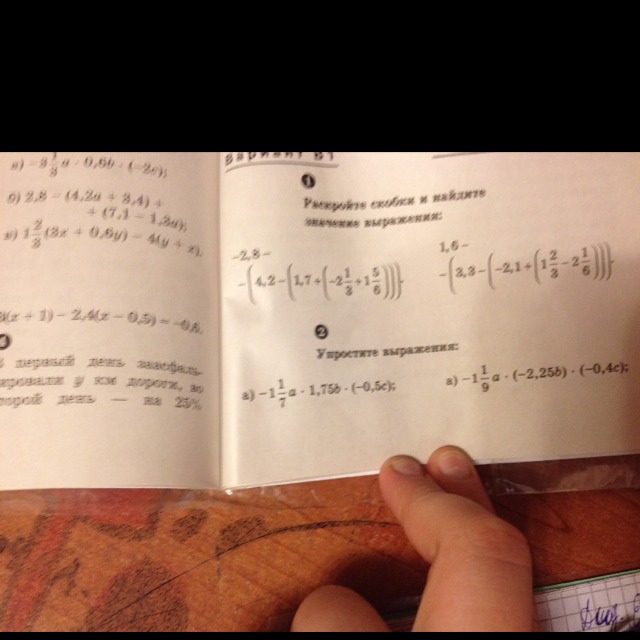 в) −3 1/3 a · 0,6b · (−2c);
б) 2,8 − (4,2a + 3,4) +
+ (7,1 − 1,3a);
в) 1 2/3 (3x + 0,6y) − 4(y + x).
(x + 1) − 2,4(x − 0,5) = −0,6.
4
первый день заасфаль-
ировали y км дороги, во
торой день — на 25%
Вариант Б1
1
Раскройте скобки и найдите
значение выражения:
−2,8 −
−(4,2 − (1,7 + (−2 1/3 + 1 5/6))).
1,6 −
−(3,3 − (−2,1 + (1 2/3 − 2 1/6))).
2
Упростите выражения:
а) −1 1/7 a · 1,75b · (−0,5c);
а) −1 1/9 a · (−2,25b) · (−0,4c);